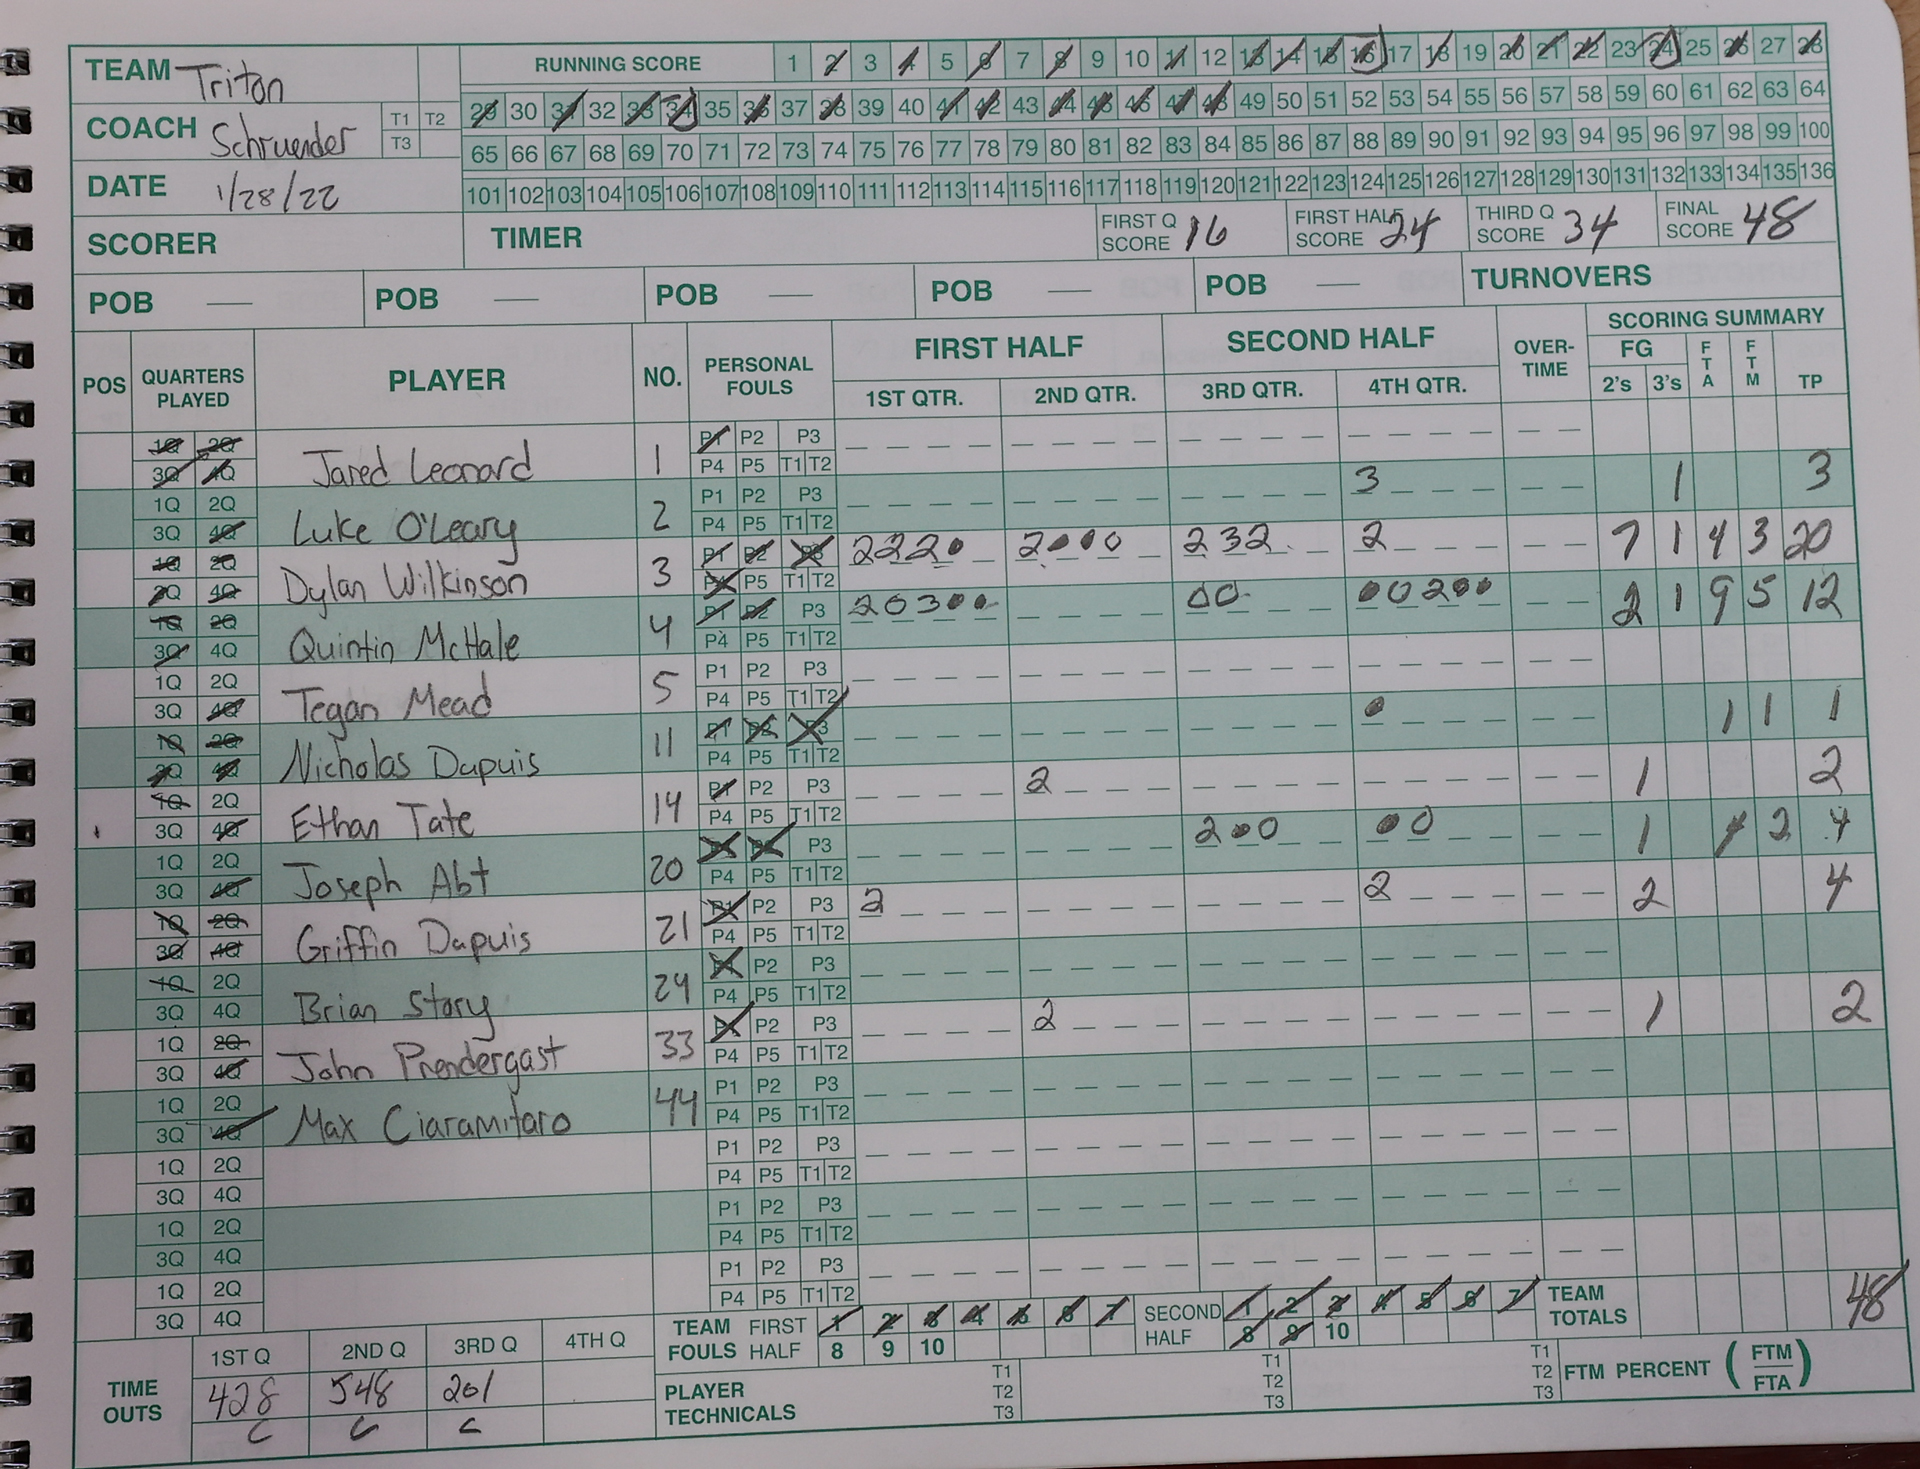 TEAM Triton
RUNNING SCORE 1 2 3 4 5 6 7 8 9 10 11 12 13 14 15 16 17 18 19 20 21 22 23 24 25 26 27 28
29 30 31 32 33 34 35 36 37 38 39 40 41 42 43 44 45 46 47 48 49 50 51 52 53 54 55 56 57 58 59 60 61 62 63 64
COACH Schruender T1 T2 T3
65 66 67 68 69 70 71 72 73 74 75 76 77 78 79 80 81 82 83 84 85 86 87 88 89 90 91 92 93 94 95 96 97 98 99 100
DATE 1/28/22
101 102 103 104 105 106 107 108 109 110 111 112 113 114 115 116 117 118 119 120 121 122 123 124 125 126 127 128 129 130 131 132 133 134 135 136
SCORER TIMER FIRST Q SCORE 16 FIRST HALF SCORE 24 THIRD Q SCORE 34 FINAL SCORE 48
POB POB POB POB POB TURNOVERS
POS QUARTERS PLAYED PLAYER NO. PERSONAL FOULS FIRST HALF SECOND HALF OVER-TIME SCORING SUMMARY
1ST QTR. 2ND QTR. 3RD QTR. 4TH QTR. FG 2's 3's FTA FTM TP
1Q 2Q P1 P2 P3
3Q 4Q Jared Leonard 1 P4 P5 T1 T2
1Q 2Q P1 P2 P3 3 1 3
3Q 4Q Luke O'Leary 2 P4 P5 T1 T2
1Q 2Q P1 P2 P3 2220 2000 232 2 7 1 4 3 20
3Q 4Q Dylan Wilkinson 3 P4 P5 T1 T2
1Q 2Q P1 P2 P3 20300 00 00200 2 1 9 5 12
3Q 4Q Quintin McHale 4 P4 P5 T1 T2
1Q 2Q P1 P2 P3
3Q 4Q Tegan Mead 5 P4 P5 T1 T2
1Q 2Q P1 P2 P3 0 1 1 1
3Q 4Q Nicholas Dupuis 11 P4 P5 T1 T2
1Q 2Q P1 P2 P3 2 1 2
3Q 4Q Ethan Tate 14 P4 P5 T1 T2
1Q 2Q P1 P2 P3 200 00 1 4 2 4
3Q 4Q Joseph Abt 20 P4 P5 T1 T2
1Q 2Q P1 P2 P3 2 2 2 4
3Q 4Q Griffin Dupuis 21 P4 P5 T1 T2
1Q 2Q P1 P2 P3
3Q 4Q Brian Story 24 P4 P5 T1 T2
1Q 2Q P1 P2 P3 2 1 2
3Q 4Q John Prendergast 33 P4 P5 T1 T2
1Q 2Q P1 P2 P3
3Q 4Q Max Ciaramitaro 44 P4 P5 T1 T2
1Q 2Q P1 P2 P3
3Q 4Q P4 P5 T1 T2
1Q 2Q P1 P2 P3
3Q 4Q P4 P5 T1 T2
1Q 2Q P1 P2 P3
3Q 4Q P4 P5 T1 T2
TEAM FOULS FIRST HALF 1 2 3 4 5 6 7 8 9 10 SECOND HALF 1 2 3 4 5 6 7 8 9 10 TEAM TOTALS 48
TIME OUTS 1ST Q 2ND Q 3RD Q 4TH Q
428 548 201
C C C
PLAYER TECHNICALS T1 T2 T3 T1 T2 T3 T1 T2 T3 FTM PERCENT (FTM/FTA)